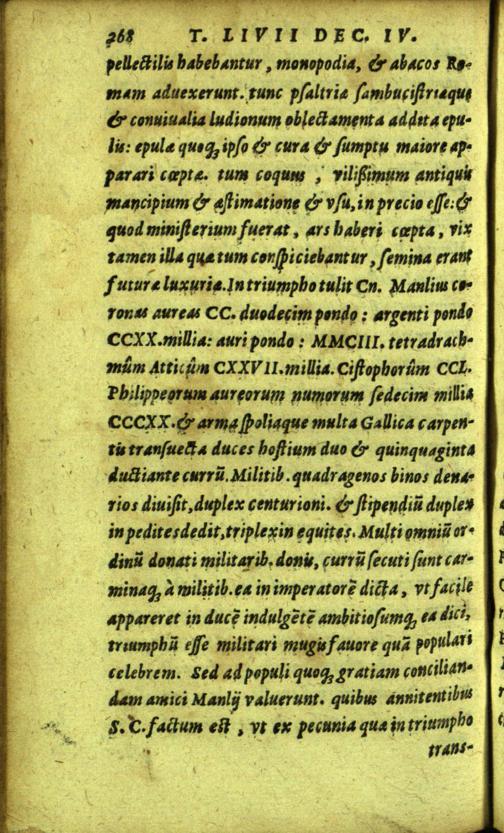 268 T. LIVII DEC. IV.
pellectilis habebantur, monopodia, & abacos Ro-
mam aduexerunt. tunc psaltriæ sambucistriæque
& conuiualia ludionum oblectamenta addita epu-
lis: epulæ quoq; ipso & cura & sumptu maiore ap-
parari cœptæ. tum coquus, vilißimum antiquis
mancipium & æstimatione & vsu, in precio esse: &
quod ministerium fuerat, ars haberi cœpta, vix
tamen illa quæ tum conspiciebantur, semina erant
futuræ luxuriæ. In triumpho tulit Cn. Manlius co-
ronas aureas CC. duodecim pondo: argenti pondo
CCXX. millia: auri pondo: MMCIII. tetradrach-
mûm Atticûm CXXVII. millia. Cistophorûm CCL.
Philippeorum aureorum numorum sedecim millia
CCCXX. & arma spoliaque multa Gallica carpen-
tis transuecta duces hostium duo & quinquaginta
ductiante currū. Militib. quadragenos binos dena-
rios diuisit, duplex centurioni. & stipendiū duplex
in pedites dedit, triplex in equites. Multi omniū or-
dinū donati militarib. donis, currū secuti sunt car-
minaq; à militib. ea in imperatorē dicta, vt facile
appareret in ducē indulgētē ambitiosumq; ea dici,
triumphū esse militari magis fauore quā populari
celebrem. Sed ad populi quoq; gratiam concilian-
dam amici Manlij valuerunt. quibus annitentibus
S. C. factum est, vt ex pecunia quæ in triumpho
trans-